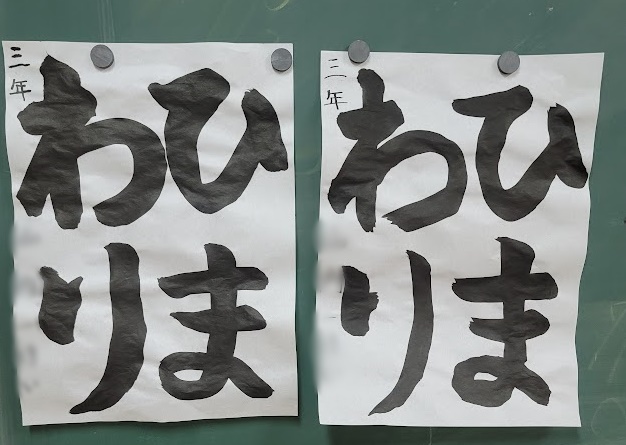 ひま
わり
三年
ひま
わり
三年